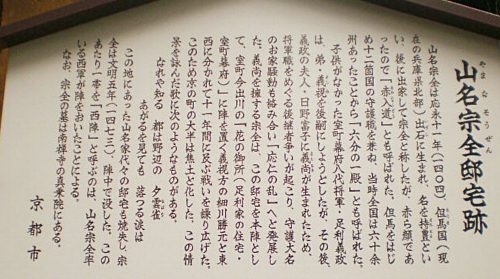 山名宗全邸宅跡
やまなそうぜん
山名宗全は応永十一年(一四〇四)、但馬国(現
在の兵庫県北部)出石に生まれ、名を持豊とい
い、後に出家して宗全と称したが、赤ら顔であ
ったので「赤入道」とも呼ばれた。但馬をはじ
め十二箇国の守護職を兼ね、当時全国は六十余
州あったことから「六分の一殿」とも呼ばれた。
子供がなかった室町幕府八代将軍・足利義政
は、弟・義視を後嗣にしようとしたが、その後、
義政の夫人、日野富子に義尚が生まれたため、
将軍職をめぐる後継者争いが起こり、守護大名
のお家騒動も絡み合い「応仁の乱」へと発展し
た。義尚を擁する宗全は、この邸宅を本陣とし
て、室町今出川の「花の御所」(足利家の住宅・
室町幕府)に陣を置く義視方の細川勝元と東
西に分かれて十一年間に及ぶ戦いを繰り広げた。
このため京の町の大半は焦土と化した。この情
景を詠んだ歌に次のようなものがある。
なれや知る 都は野辺の 夕雲雀
あがるを見ても 落つる涙は
この地にあった山名家代々の邸宅も焼失し宗
全は文明五年(一四七三)、陣中で没した。この
あたり一帯を「西陣」と呼ぶのは、山名宗全率
いる西軍が陣をおいたことによる。
なお、宗全の墓は南禅寺の真乗院にある。
京都市